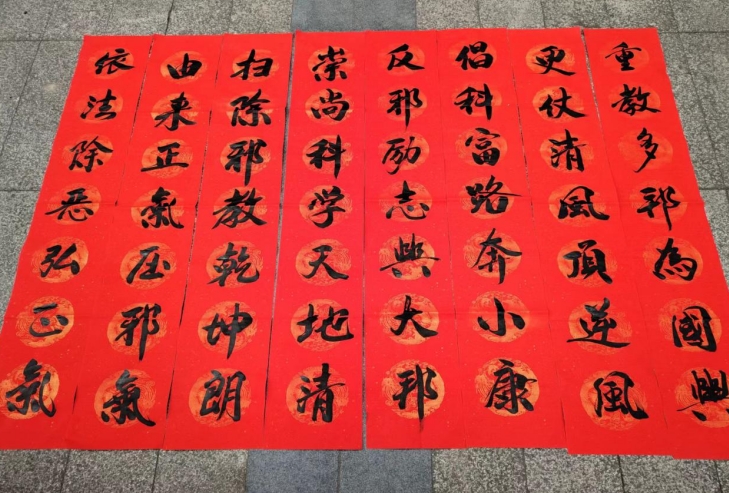 重教多邪為國興
更仗清風頂逆風
倡科富路奔小康
反邪励志興大邦
崇尚科学天地清
扫除邪教乾坤朗
由来正氣压邪氣
依法除恶弘正氣